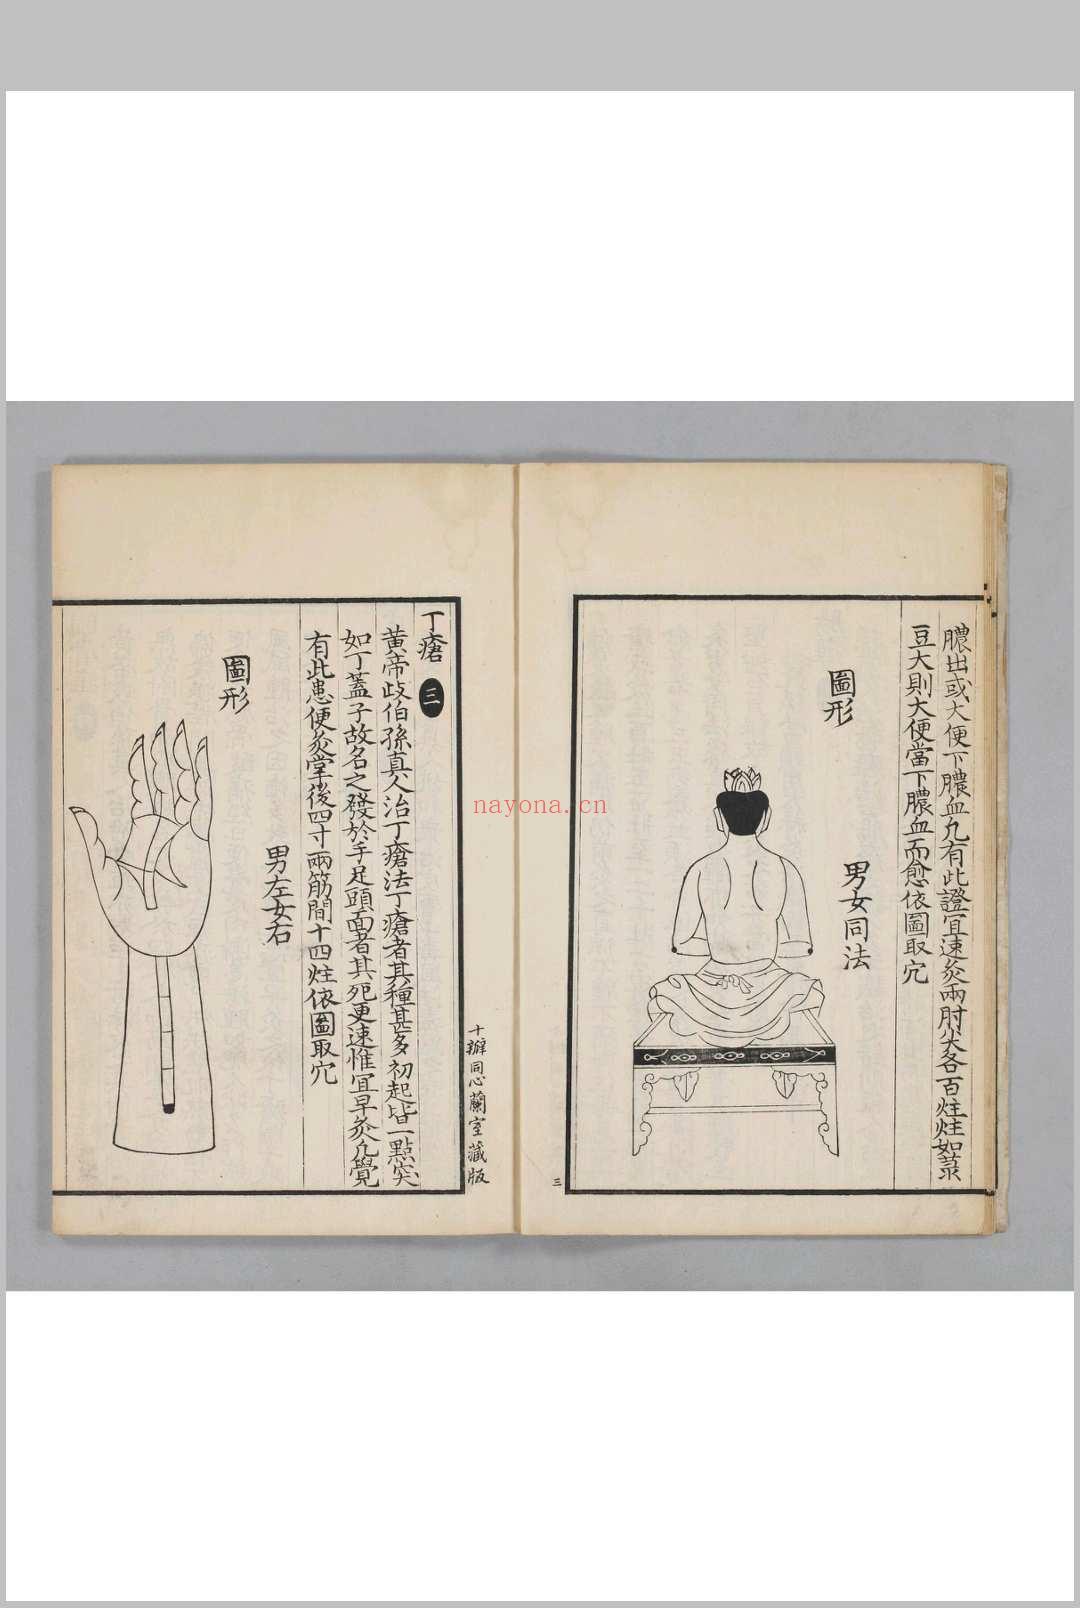 膿出或大便下膿血凢有此證宜速灸兩肘尖各百炷炷如菉
豆大則大便當下膿血而愈依圖取穴
圖形
男女同法
三
十瓣同心蘭室藏版
丁瘡 三
黃帝歧伯孫真人治丁瘡法丁瘡者其種甚多初起皆一點突
如丁蓋子故名之發於手足頭面者其死更速惟宜早灸凢覺
有此患便灸掌後四寸兩筋間十四炷依圖取穴
男左女右
圖形
nayona.cn